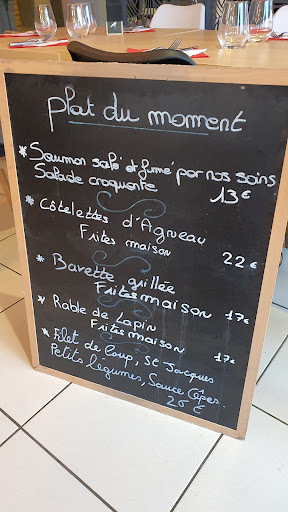 plat du moment
* Saumon salé et fumé par nos soins
Salade croquante 13€
* Côtelettes d'Agneau
Frites maison 22€
* Bavette grillée
Frites maison 17€
* Rable de Lapin
Frites maison 17€
* Filet de loup, St Jacques
Petits légumes, Sauce Cêpes
26€